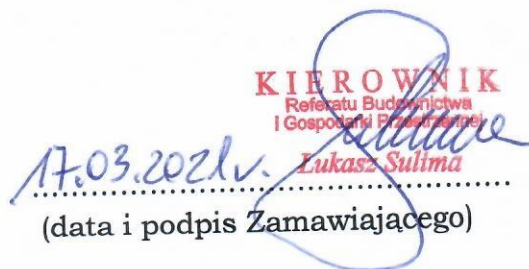 KIEROWNIK
Referatu Budownictwa
i Gospodarki Przestrzennej
Łukasz Sulima
17.03.2021r.
(data i podpis Zamawiającego)